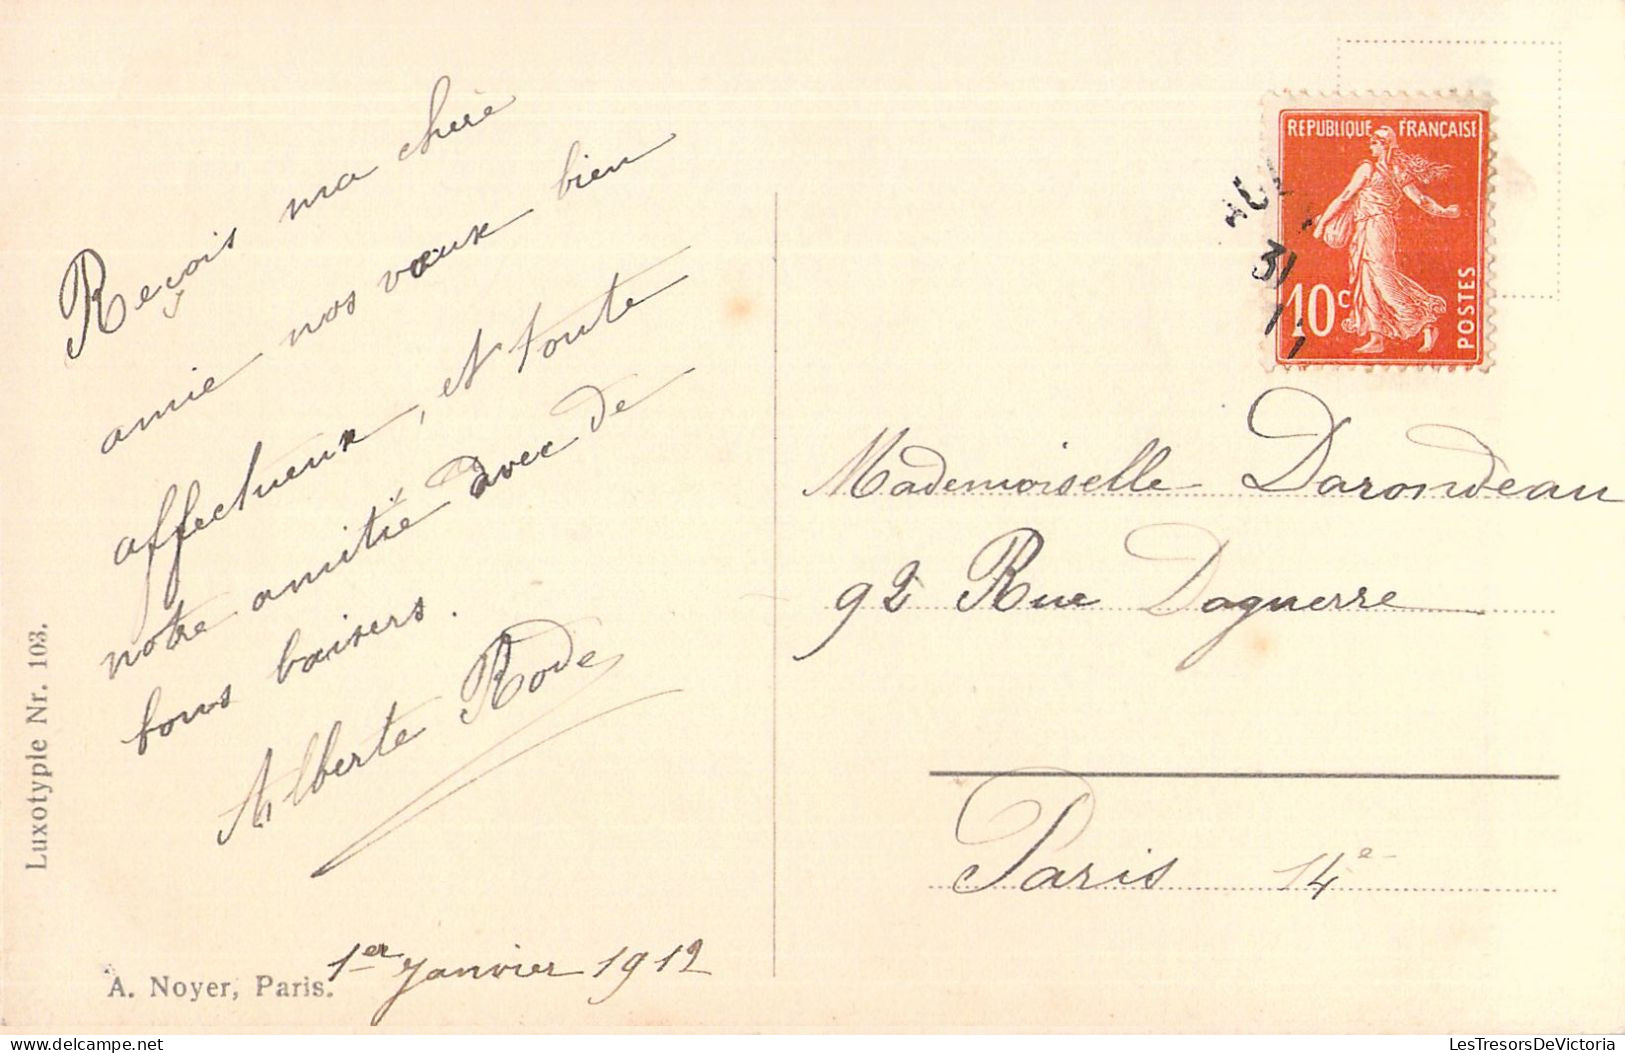 Reçois ma chère
amie nos vœux bien
affectueux, et toute
notre amitié avec de
bons baisers.
Alberte Rode
1er Janvier 1912
Luxotyple Nr. 103.
A. Noyer, Paris.
REPUBLIQUE FRANÇAISE
10c
POSTES
31
Mademoiselle Darondeau
92 Rue Daguerre
Paris 14e
delcampe.net
LesTresorsDeVictoria